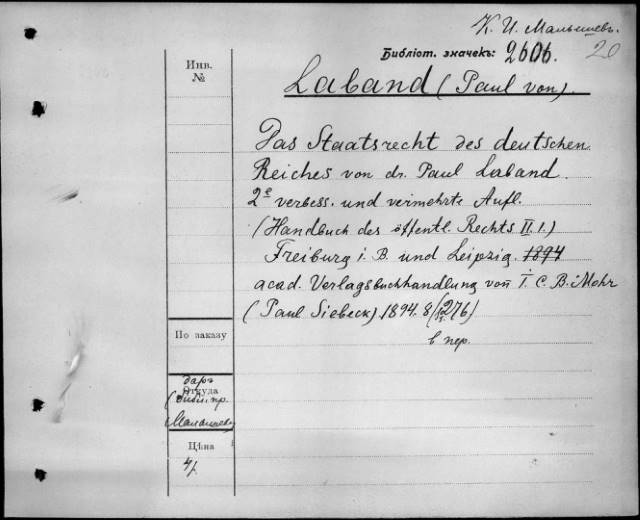 К. И. Малышевъ.
20
Библіот. значекъ: 2606.
Инв.
№
Laband (Paul von).
Das Staatsrecht des deutschen
Reiches von dr. Paul Laband.
2e verbess. und vermehrte Aufl.
(Handbuch des öffentl. Rechts II.1.)
Freiburg i. B. und Leipzig. 1894
acad. Verlagsbuchhandlung von I. C. B. Mohr
(Paul Siebeck) 1894. 8 276)
в пер.
По заказу
даръ
Откуда
пр.
Малышева)
Цѣна
4/.